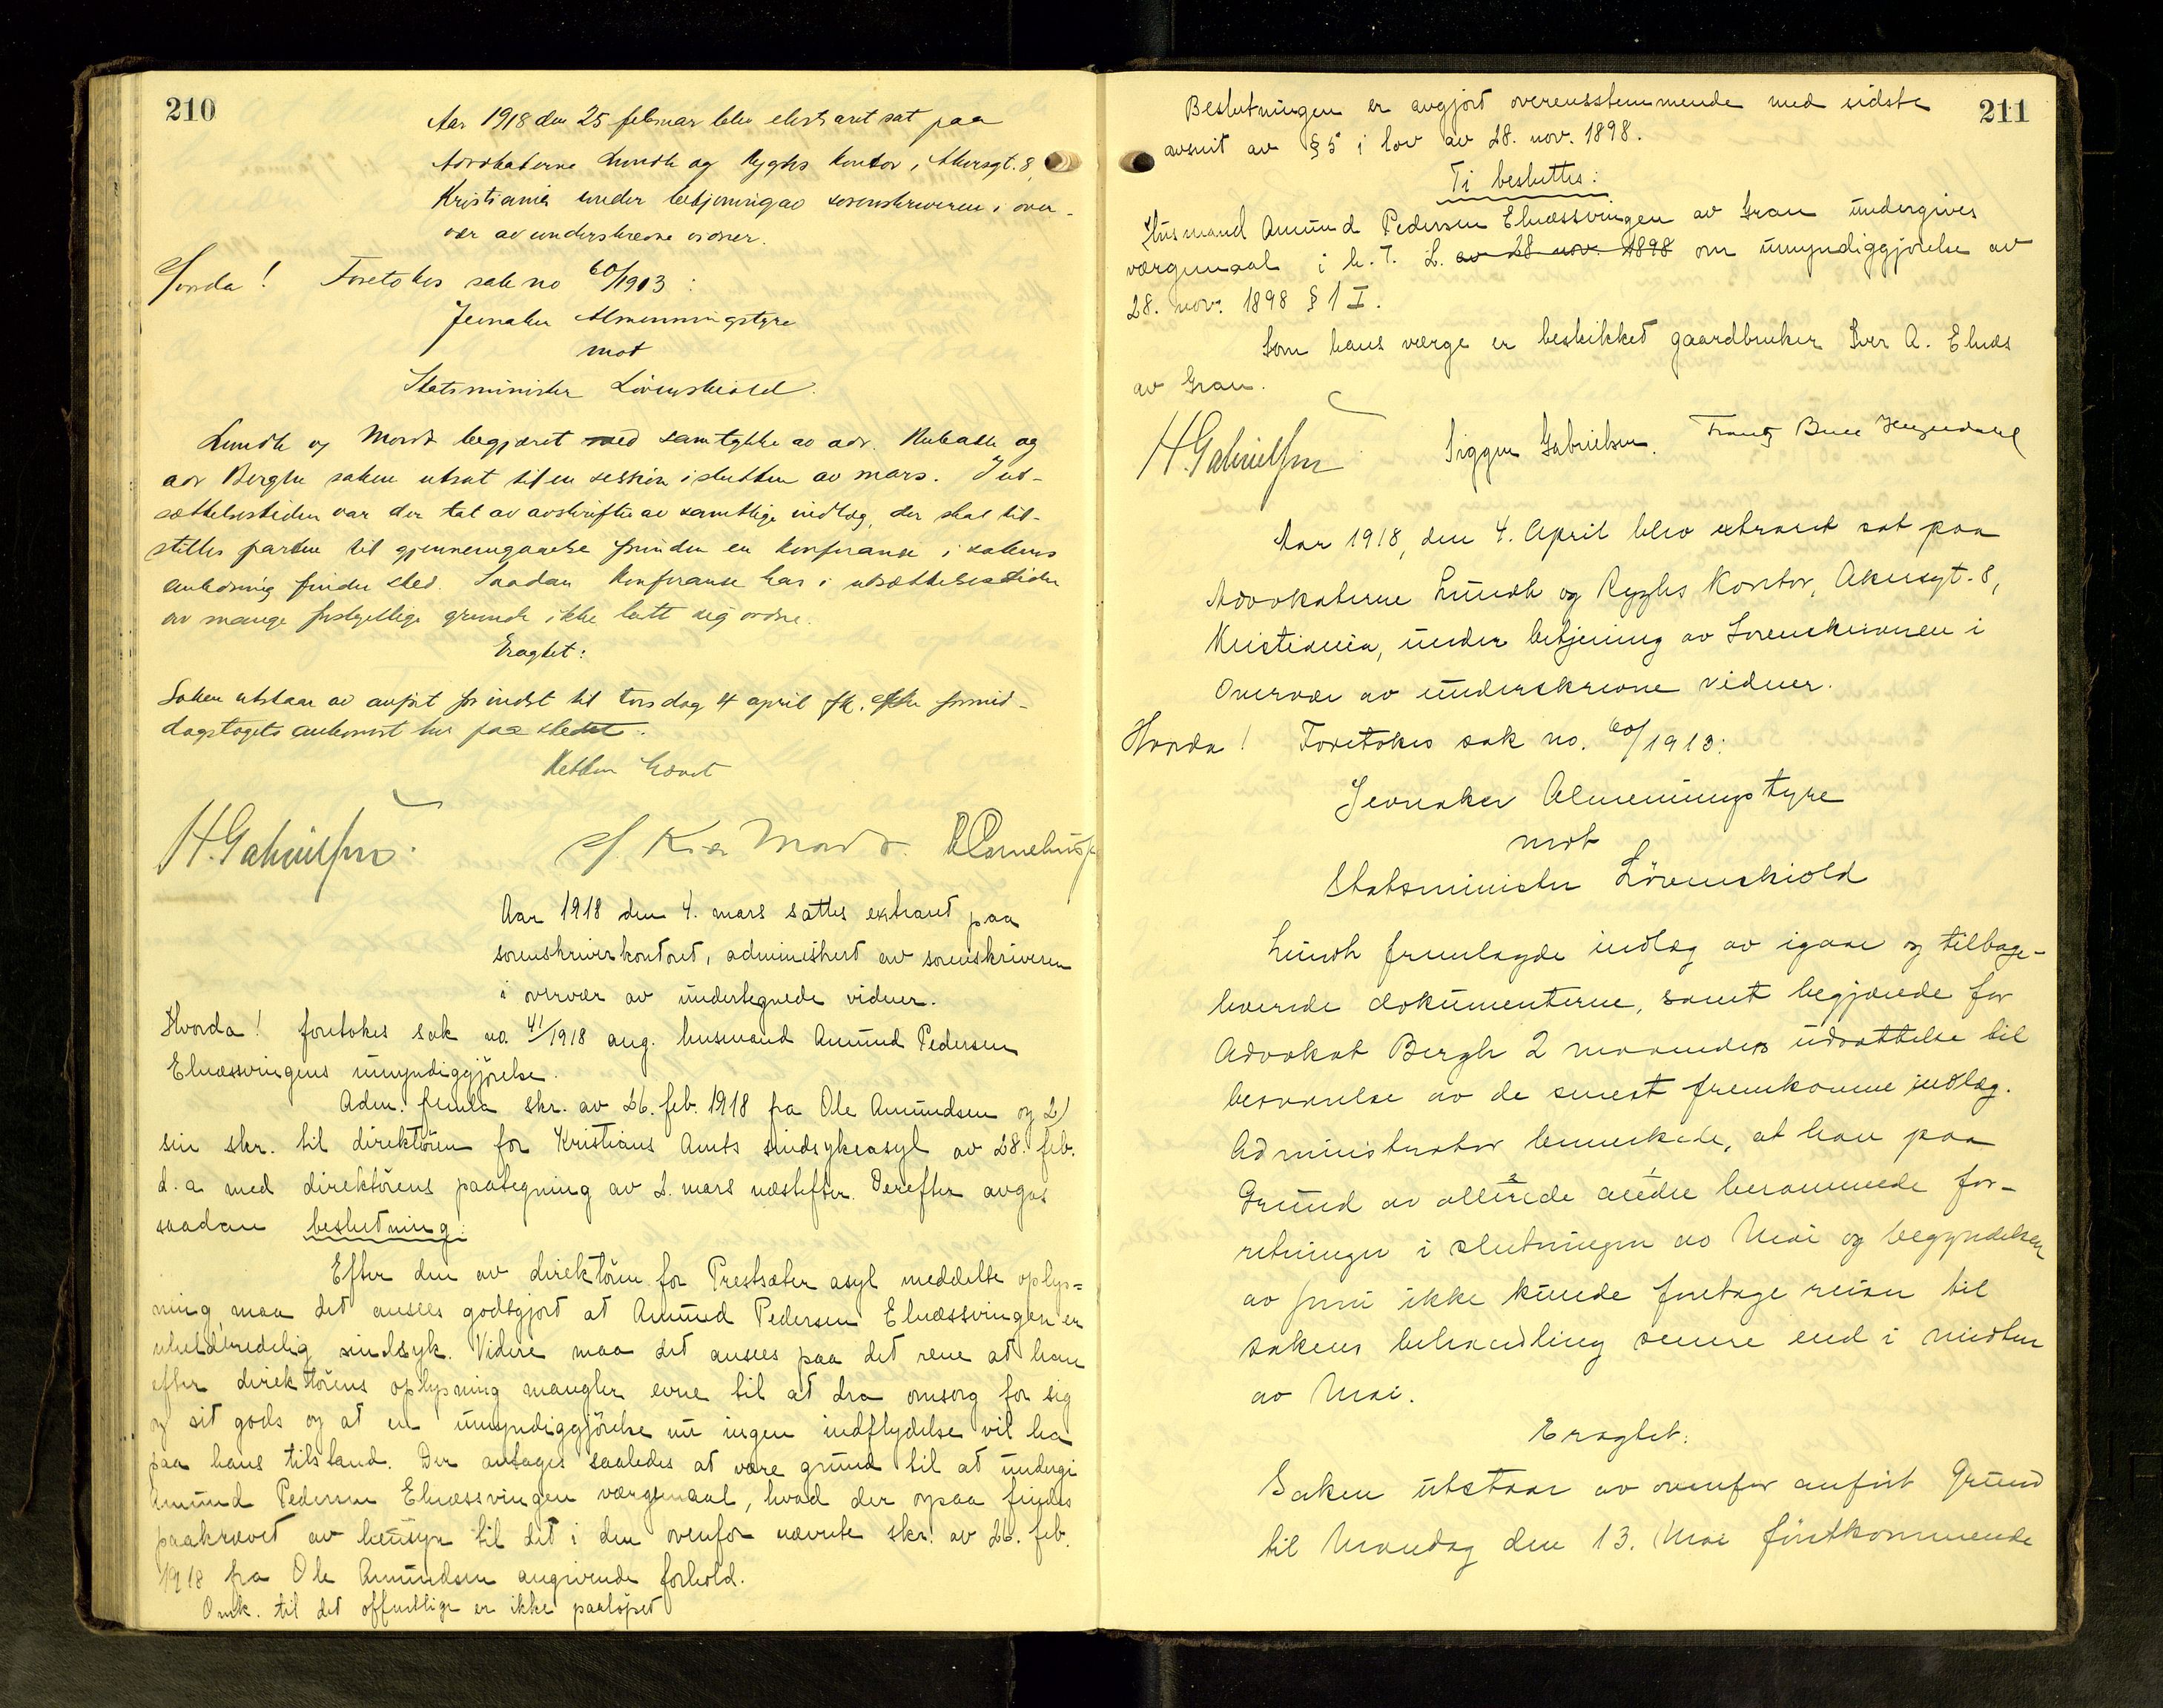 210
Aar 1918 den 25 februar blev ekstraret sat paa
Advokaterne Lundh og Ryghs kontor, Akersgt. 8,
Kristiania under betjening av sorenskriveren i over-
vær av underskrevne vidner.
Hvorda! Foretokes sak no 60/1913:
Jevnaker Almenningstyre
mot
Statsminister Lövenskiold.
Lundh og Mordt begjæret med samtykke av adv. og
adv Bergh saken utsat til en session i slutten av mars. I ut-
sættelsestiden var der tat av avskrifter av samtlige indlæg, der skal til-
stilles parterne til gjennemgaaelse forinden en konferanse i sakens
anledning finder sted. Saadan konferanse har i utsættelsestiden
av mange forskjellige grunde ikke latt sig ordne.
Eragtet:
Saken utstaar av anført grund til torsdag 4 april fk. efter formid-
dagstogets ankomst her paa stedet.
Retten hævet
H. Gabrielsen. Kia Mordt.
Aar 1918 den 4. mars sattes extraret paa
sorenskriverkontoret, administrert av sorenskriveren
i overvær av undertegnede vidner.
Hvorda! foretokes sak no. 41/1918 ang. husmand Amund Pedersen
Elnæssvingens umyndiggjörelse.
Adm. fremla skr. av 26. feb. 1918 fra Ole Amundsen og 2)
sin skr. til direktören for Kristians Amts sindsykeasyl av 28. feb.
d.a med direktörens paategning av 2. mars næstefter. Derefter avgas
saadan beslutning:
Efter den av direktören for Prestsæter asyl meddelte oplys=
ning, maa det ansees godtgjort at Amund Pedersen Elnæssvingen er
uhelbredelig sindssyk. Videre maa det ansees paa det rene at han
efter direktörens oplysning mangler evne til at dra omsorg for sig
og sit gods og at en umyndiggjörelse nu ingen indflydelse vil ha
paa hans tilstand. Der antages saaledes at være grund til at undergi
Amund Pedersen Elnæssvingen værgemaal, hvad der ogsaa findes
paakrævet av hensyn til det i den ovenfor nævnte skr. av 26. feb.
1918 fra Ole Amundsen angivende forhold.
Omk. til det offentlige er ikke paaløpet
211
Beslutningen er avgjort overensstemmende med sidste
avsnit av § 5 i lov av 28. nov. 1898.
Ti besluttes:
Husmand Amund Pedersen Elnæssvingen av Gran undergives
værgemaal i h. T. L. av 28 nov. 1898 om umyndiggjörelse av
28. nov. 1898 § 1 I.
Som hans værge er beskikket gaardbruker Iver A. Elnæs
av Gran.
H. Gabrielsen Siggen Gabrielsen. Frantz
Aar 1918, den 4. April blev extraret sat paa
Advokaterne Lundh og Ryghs Kontor, Akersgt. 8,
Kristiania, under betjening av Sorenskriveren i
Overvær av underskrevne vidner.
Hvorda! Foretokes sak no. 60/1913:
Jevnaker Almenningstyre
mot
Statsminister Lövenskiold
Lundh fremlagde indlæg av igaar og tilbage-
leverede dokumenterne, samt begjærede for
Advokat Bergh 2 maaneders udsættelse til
besvarelse av de senest fremkomne indlæg.
Administrator bemerkede, at han paa
Grund av allerede andre berammede for-
retninger i slutningen av Mai og begyndelsen
av juni ikke kunde foretage reisen til
sakens behandling senere end i midten
av Mai.
Eragtet:
Saken utstaar av ovenfor anført Grund
til Mandag den 13. Mai førstkommende